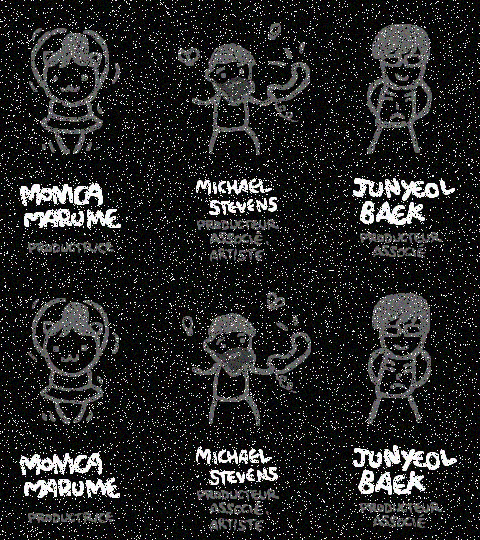 MONICA
MARUME
PRODUCTRICE
MICHAEL
STEVENS
PRODUCTEUR
ASSOCIÉ
ARTISTE
JUNYEOL
BAEK
PRODUCTEUR
ASSOCIÉ
MONICA
MARUME
PRODUCTRICE
MICHAEL
STEVENS
PRODUCTEUR
ASSOCIÉ
ARTISTE
JUNYEOL
BAEK
PRODUCTEUR
ASSOCIÉ